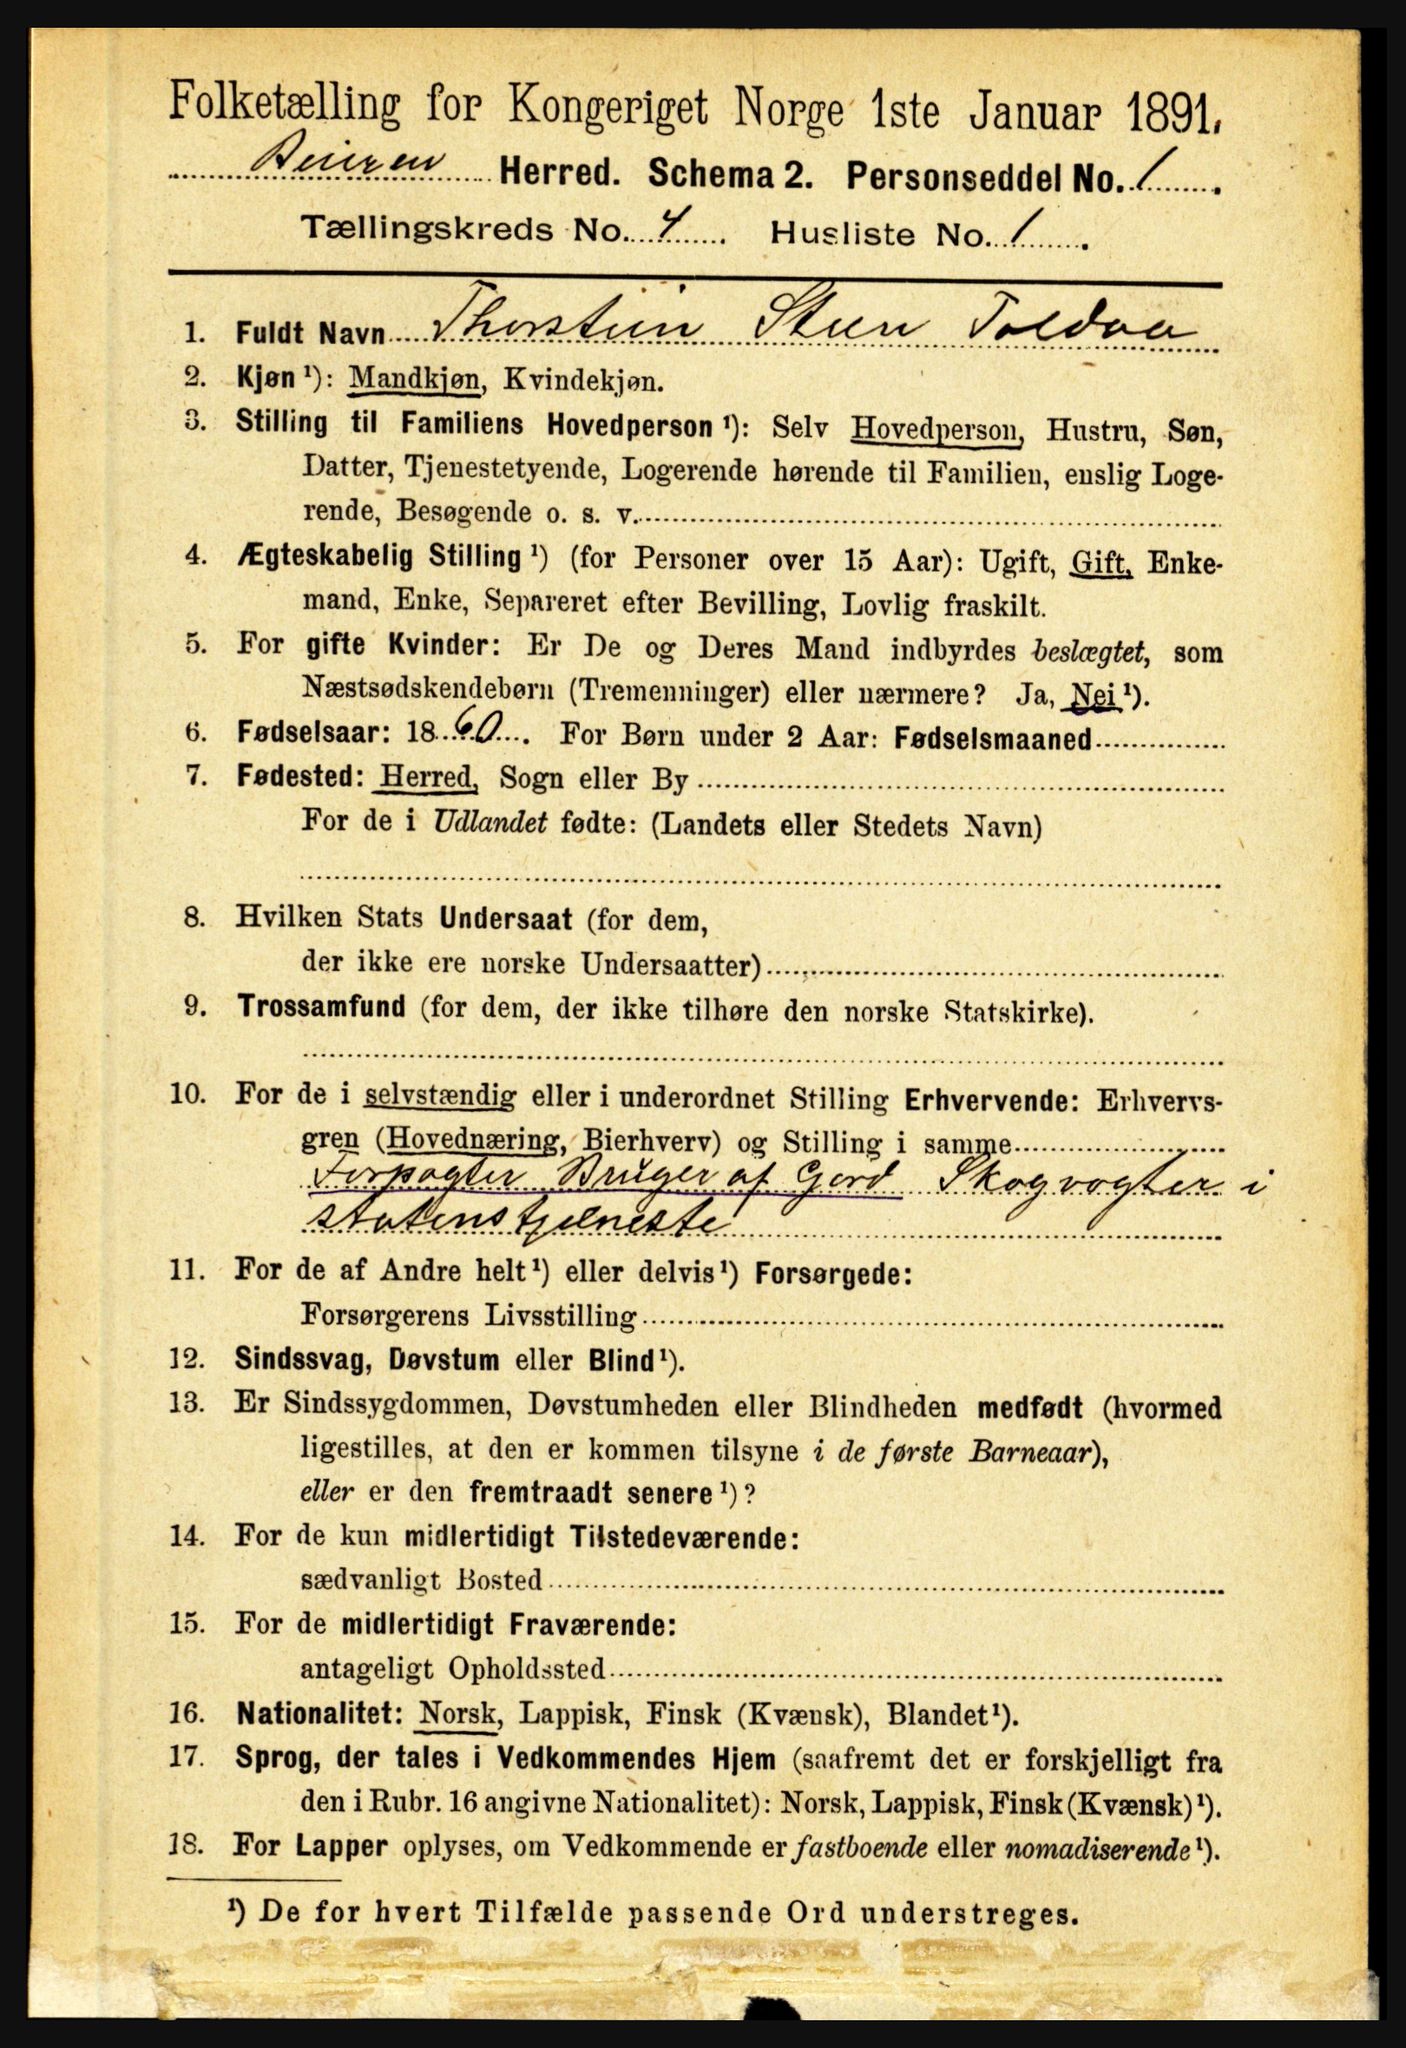 Folketælling for Kongeriget Norge 1ste Januar 1891.
Beieren Herred. Schema 2. Personseddel No. 1.
Tællingskreds No. 4. Husliste No. 1.
1. Fuldt Navn Thorstein Steen Toldaa
2. Kjøn ¹): Mandkjøn, Kvindekjøn.
3. Stilling til Familiens Hovedperson ¹): Selv Hovedperson, Hustru, Søn,
Datter, Tjenestetyende, Logerende hørende til Familien, enslig Loge-
rende, Besøgende o. s. v.
4. Ægteskabelig Stilling ¹) (for Personer over 15 Aar): Ugift, Gift, Enke-
mand, Enke, Separeret efter Bevilling, Lovlig fraskilt.
5. For gifte Kvinder: Er De og Deres Mand indbyrdes beslægtet, som
Næstsødskendebørn (Tremenninger) eller nærmere? Ja, Nei ¹).
6. Fødselsaar: 1860. For Børn under 2 Aar: Fødselsmaaned
7. Fødested: Herred, Sogn eller By
For de i Udlandet fødte: (Landets eller Stedets Navn)
8. Hvilken Stats Undersaat (for dem,
der ikke ere norske Undersaatter)
9. Trossamfund (for dem, der ikke tilhøre den norske Statskirke).
10. For de i selvstændig eller i underordnet Stilling Erhvervende: Erhvervs-
gren (Hovednæring, Bierhverv) og Stilling i samme
Forpagter Bruger af Gord Skogvogter i
statenstjeneste
11. For de af Andre helt ¹) eller delvis ¹) Forsørgede:
Forsørgerens Livsstilling
12. Sindssvag, Døvstum eller Blind ¹).
13. Er Sindssygdommen, Døvstumheden eller Blindheden medfødt (hvormed
ligestilles, at den er kommen tilsyne i de første Barneaar),
eller er den fremtraadt senere ¹)?
14. For de kun midlertidigt Tilstedeværende:
sædvanligt Bosted
15. For de midlertidigt Fraværende:
antageligt Opholdssted
16. Nationalitet: Norsk, Lappisk, Finsk (Kvænsk), Blandet ¹).
17. Sprog, der tales i Vedkommendes Hjem (saafremt det er forskjelligt fra
den i Rubr. 16 angivne Nationalitet): Norsk, Lappisk, Finsk (Kvænsk) ¹).
18. For Lapper oplyses, om Vedkommende er fastboende eller nomadiserende ¹).
¹) De for hvert Tilfælde passende Ord understreges.